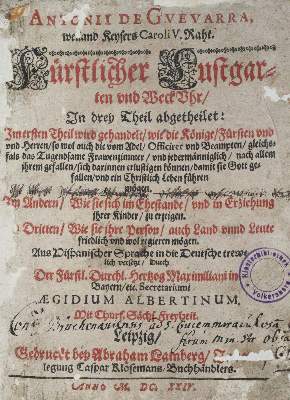 ANTONII DE GVEVARRA,
weiland Keysers Caroli V. Raht.
Fürstlicher Lustgar-
ten vnd Weck Vhr/
In drey Theil abgetheilet:
Im ersten Theil wird gehandelt/ wie die Könige/ Fürsten vnd
vnd Herren/ so wol auch die vom Adel/ Officirer vnd Beampten/ gleichs-
fals das Tugendsame Frawenzimmer/ vnd jedermänniglich/ nach allem
ihrem gefallen/ sich darinnen erlustigen können/ damit sie Gott ge-
fallen/ vnd ein Christlich Leben führen
mögen.
Im Andern/ Wie sie sich im Ehestande/ vnd in Erziehung
ihrer Kinder/ zu erzeigen.
Dritten/ Wie sie ihre Person/ auch Land vnnd Leute
friedlich vnd wol regieren mögen.
Aus Hispanischer Sprache in die Deutsche trew-
lich versetzt/ Durch
Der Fürstl. Durchl. Hertzog Maximiliani in
Bayern/ etc. Secretarium
ÆGIDIUM ALBERTINUM,
Mit Churf. Sächs. Freyheit.
Leipzig/
Gedruckt bey Abraham Lamberg/
legung Caspar Klosemans/ Buchhändlers.
ANNO M. DC. XXIV.